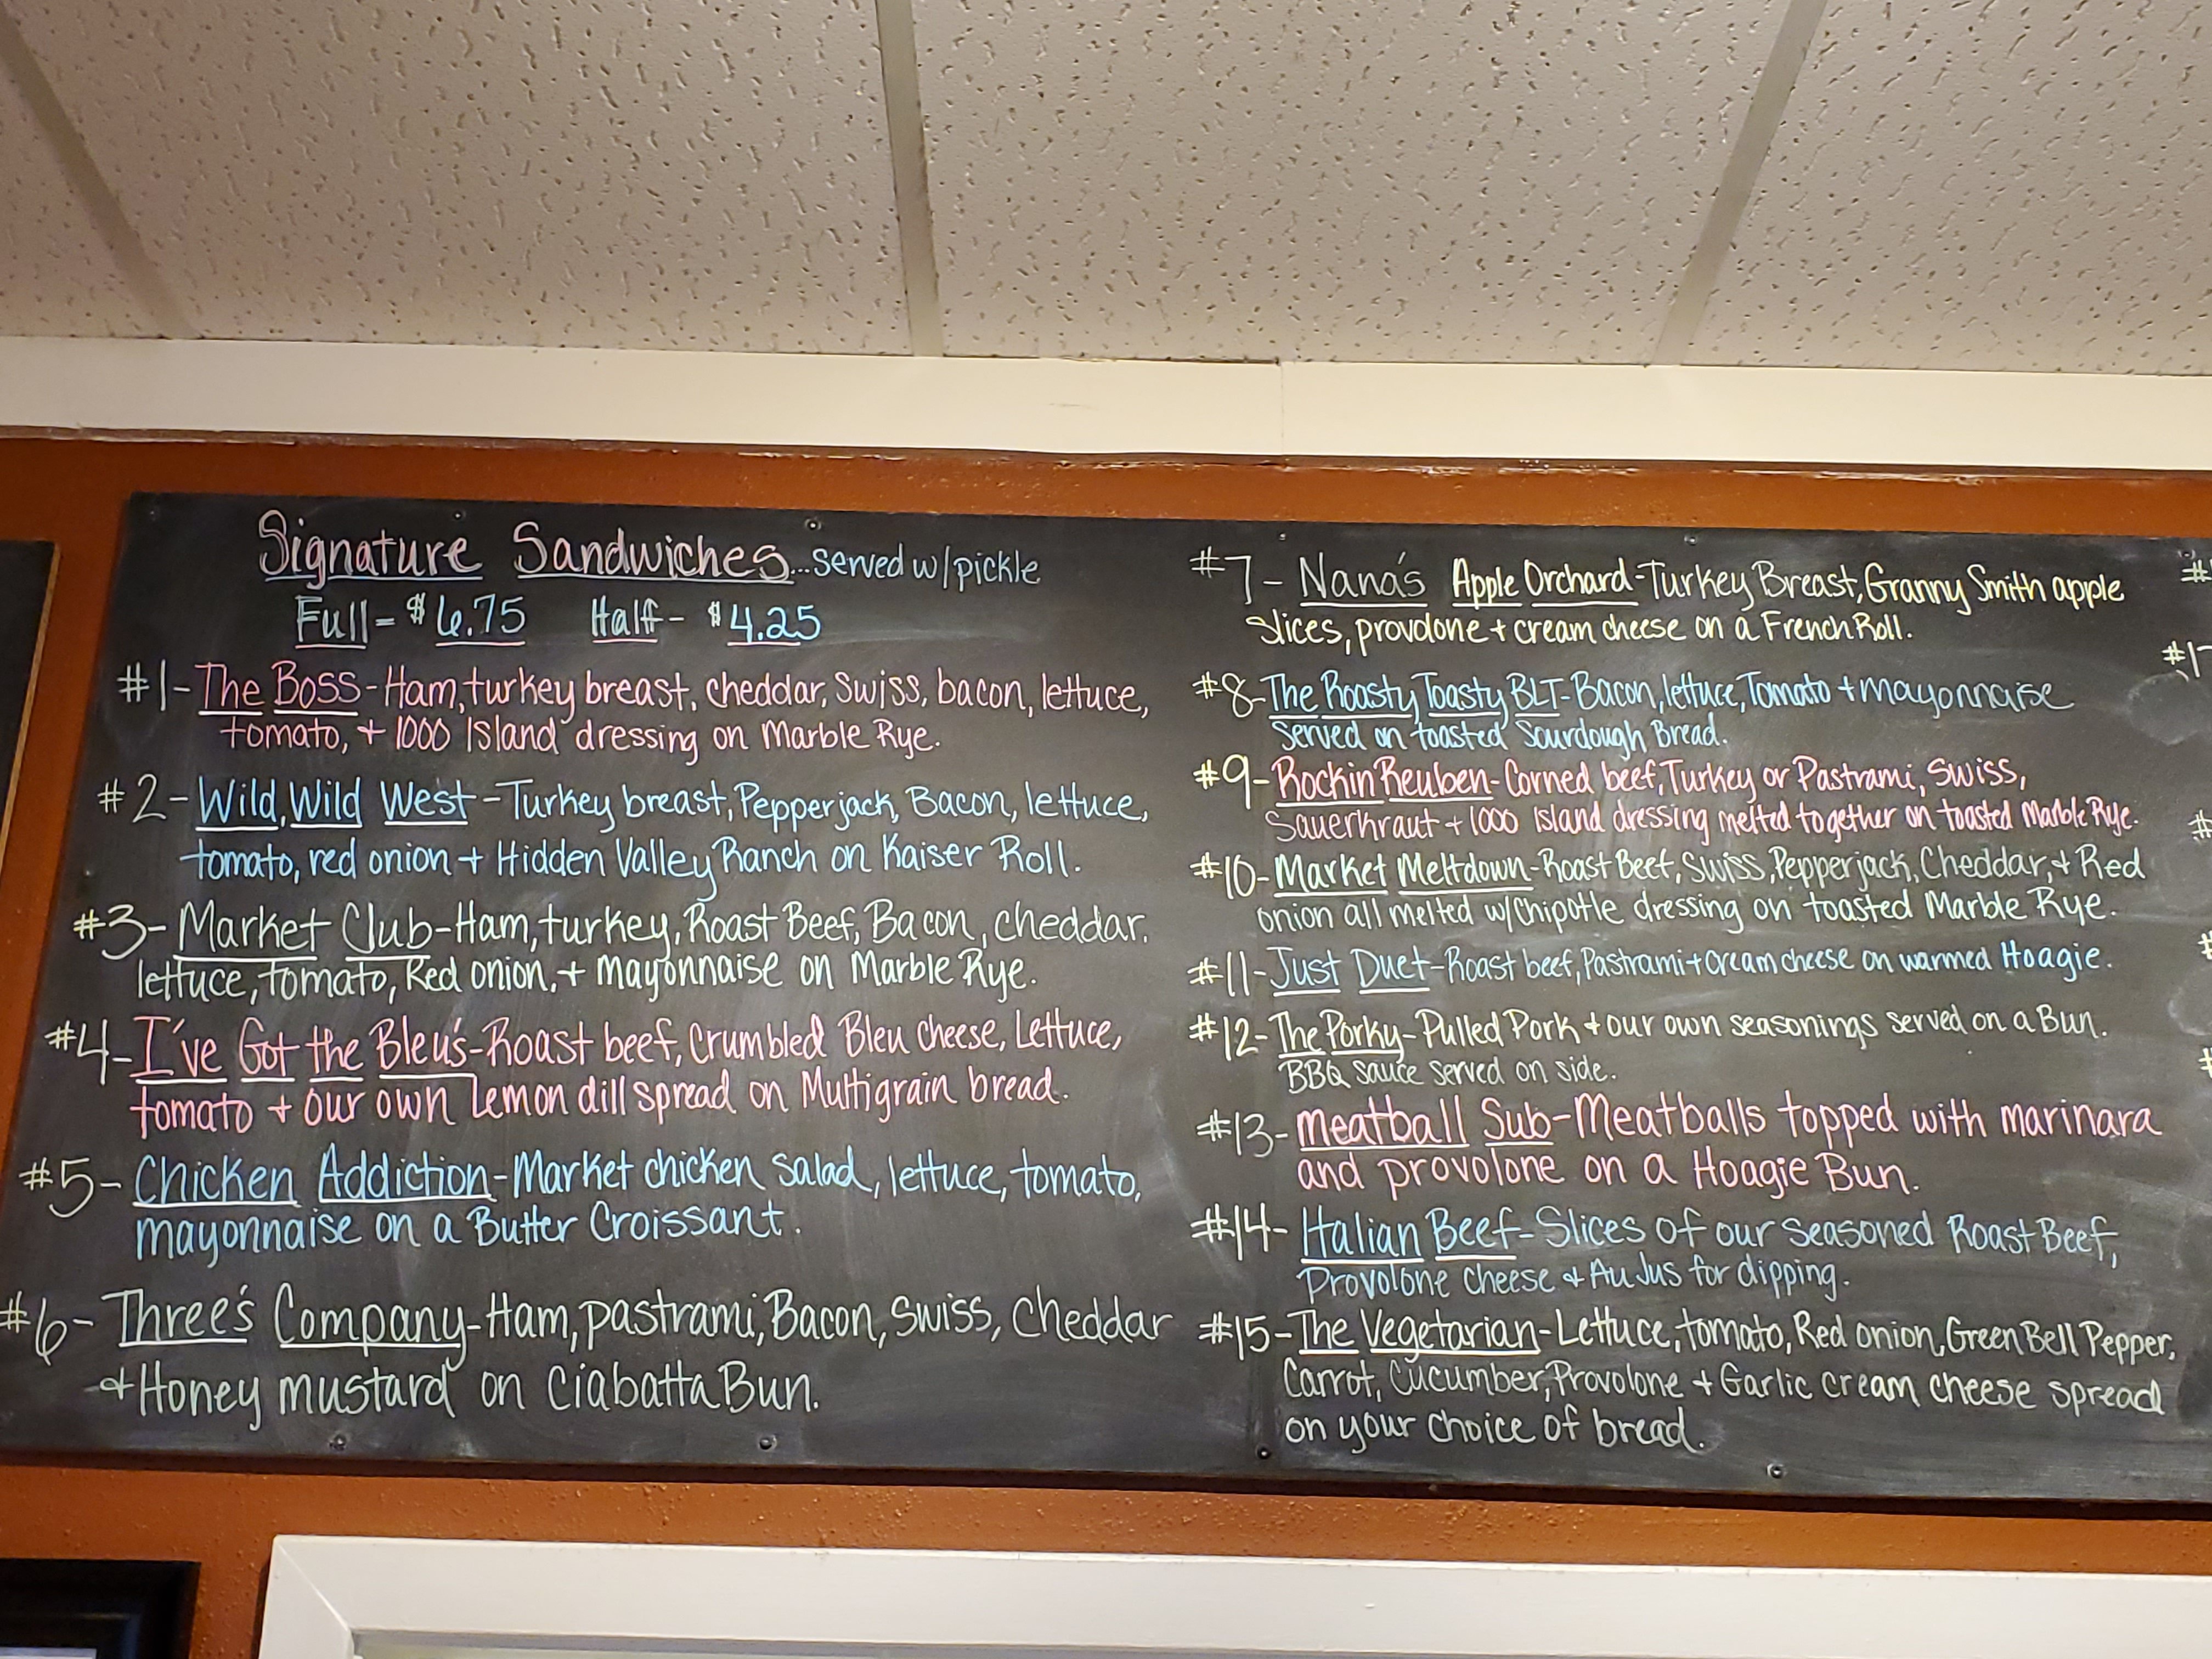 Signature Sandwiches...served w/pickle
Full-$6.75 Half-$4.25
#1-The Boss-Ham, turkey breast, cheddar, Swiss, bacon, lettuce,
tomato, + 1000 Island dressing on Marble Rye.
#2-Wild, Wild West-Turkey breast, Pepperjack, Bacon, lettuce,
tomato, red onion + Hidden Valley Ranch on Kaiser Roll.
#3-Market Club-Ham, turkey, Roast Beef, Bacon, cheddar,
lettuce, tomato, Red onion, + mayonnaise on Marble Rye.
#4-I've Got the Bleu's-Roast beef, Crumbled Bleu cheese, Lettuce,
tomato + our own Lemon dill spread on Multigrain bread.
#5-Chicken Addiction-Market chicken salad, lettuce, tomato,
mayonnaise on a Butter Croissant.
#6-Three's Company-Ham, pastrami, Bacon, Swiss, Cheddar
+ Honey mustard on Ciabatta Bun.
#7-Nana's Apple Orchard-Turkey Breast, Granny Smith apple
slices, provolone + cream cheese on a French Roll.
#8-The Roasty Toasty BLT-Bacon, lettuce, Tomato + mayonnaise
Served on toasted Sourdough Bread.
#9-Rockin Reuben-Corned beef, Turkey or Pastrami, Swiss,
Sauerkraut + 1000 Island dressing melted together on toasted Marble Rye.
#10-Market Meltdown-Roast Beef, Swiss, Pepperjack, Cheddar, + Red
onion all melted w/Chipotle dressing on toasted Marble Rye.
#11-Just Duet-Roast beef, Pastrami + cream cheese on warmed Hoagie.
#12-The Porky-Pulled Pork + our own seasonings served on a Bun.
BBQ sauce served on side.
#13-Meatball Sub-Meatballs topped with marinara
and provolone on a Hoagie Bun.
#14-Italian Beef-Slices of our seasoned Roast Beef,
Provolone cheese + Au Jus for dipping.
#15-The Vegetarian-Lettuce, tomato, Red onion, Green Bell Pepper,
Carrot, Cucumber, Provolone + Garlic cream cheese spread
on your choice of bread.